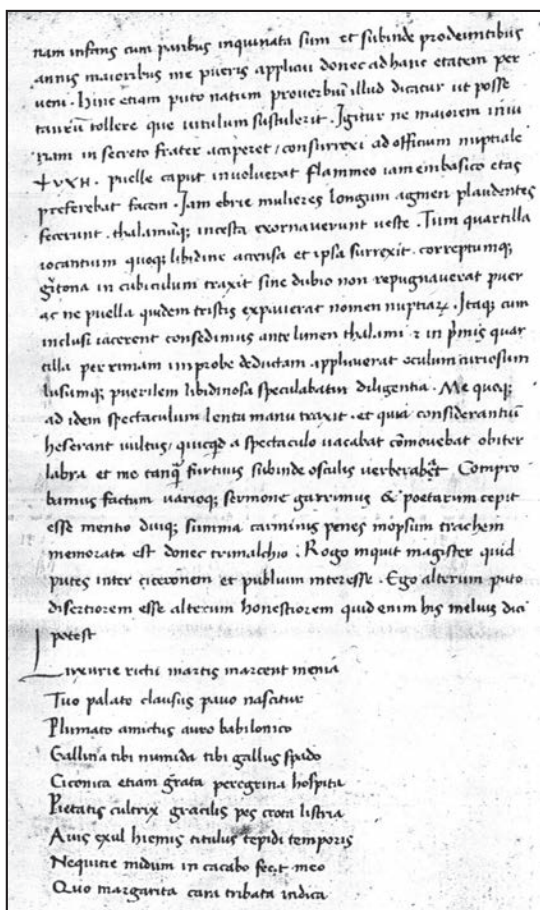 nam infans cum paribus inquinata sum et subinde prodeuntibus
annis maioribus me pueris applicui donec ad hanc etatem per
veni . hinc etiam puto natum proverbiū illud dicatur ut posse
taurū tollere que vitulum sustulerit . Igitur ne maiorem iniu
riam in secreto frater acciperet / consurrexi ad officium nuptiale
puelle caput involverat flammeo iam embasico etas
preferebat facem . Jam ebrie mulieres longum agmen plaudentes
fecerunt . thalamūq; incesta exornaverunt veste . Tum quartilla
iocantium quoq; libidine accensa et ipsa surrexit . correptumq;
gitona in cubiculum traxit sine dubio non repugnaverat puer
ac ne puella quidem tristis expaverat nomen nuptiaꝝ . Itaq; cum
inclusi iacerent consedimus ante limen thalami ⁊ in p̄mis quar
tilla per rimam improbe deductam applicuerat oculum curiosum
lusumq; puerilem libidinosa speculabatur diligentia . Me quoq;
ad idem spectaculum lenta manu traxit . et quia considerantiū
heserant vultus / quicqd a spectaculo vacabat cōmovebat obiter
labra et me tanq̄ furtivis subinde osculis verberabat Compro
bamus factum varioq; sermone garrimus & poetarum cepit
esse mentio diuq; summa carminis penes mopsum trachem
memorata est donec trimalchio : Rogo inquit magister quid
putes inter ciceronem et publium interesse . Ego alterum puto
disertiorem esse alterum honestiorem quid enim his melius dici
potest
Luxurie rictu martis marcent menia
Tuo palato clausus pavo nascitur
Plumato amictus aureo babilonico
Gallina tibi numida tibi gallus spado
Ciconica etiam grata peregrina hospita
Pietatis cultrix gracilis pes crota listria
Avis exul hiemis titulus tepidi temporis
Nequitie nidum in cacabo fecit meo
Quo margarita cara tribata indica